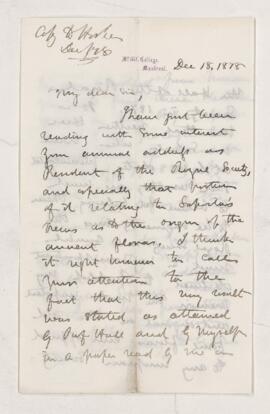 Dec 18/78
McGill College,
Montreal.
Dec 18, 1878
My dear Sir
I have just been
reading with some interest
your annual address as
President of the Royal Society,
and especially that portion
of it relating to Saporta's
views as to the origin of the
ancient floras. I think
it right however to call
your attention to the
fact that this very result
was stated as attained
by Prof Hall and by Myself
in a paper read by me in